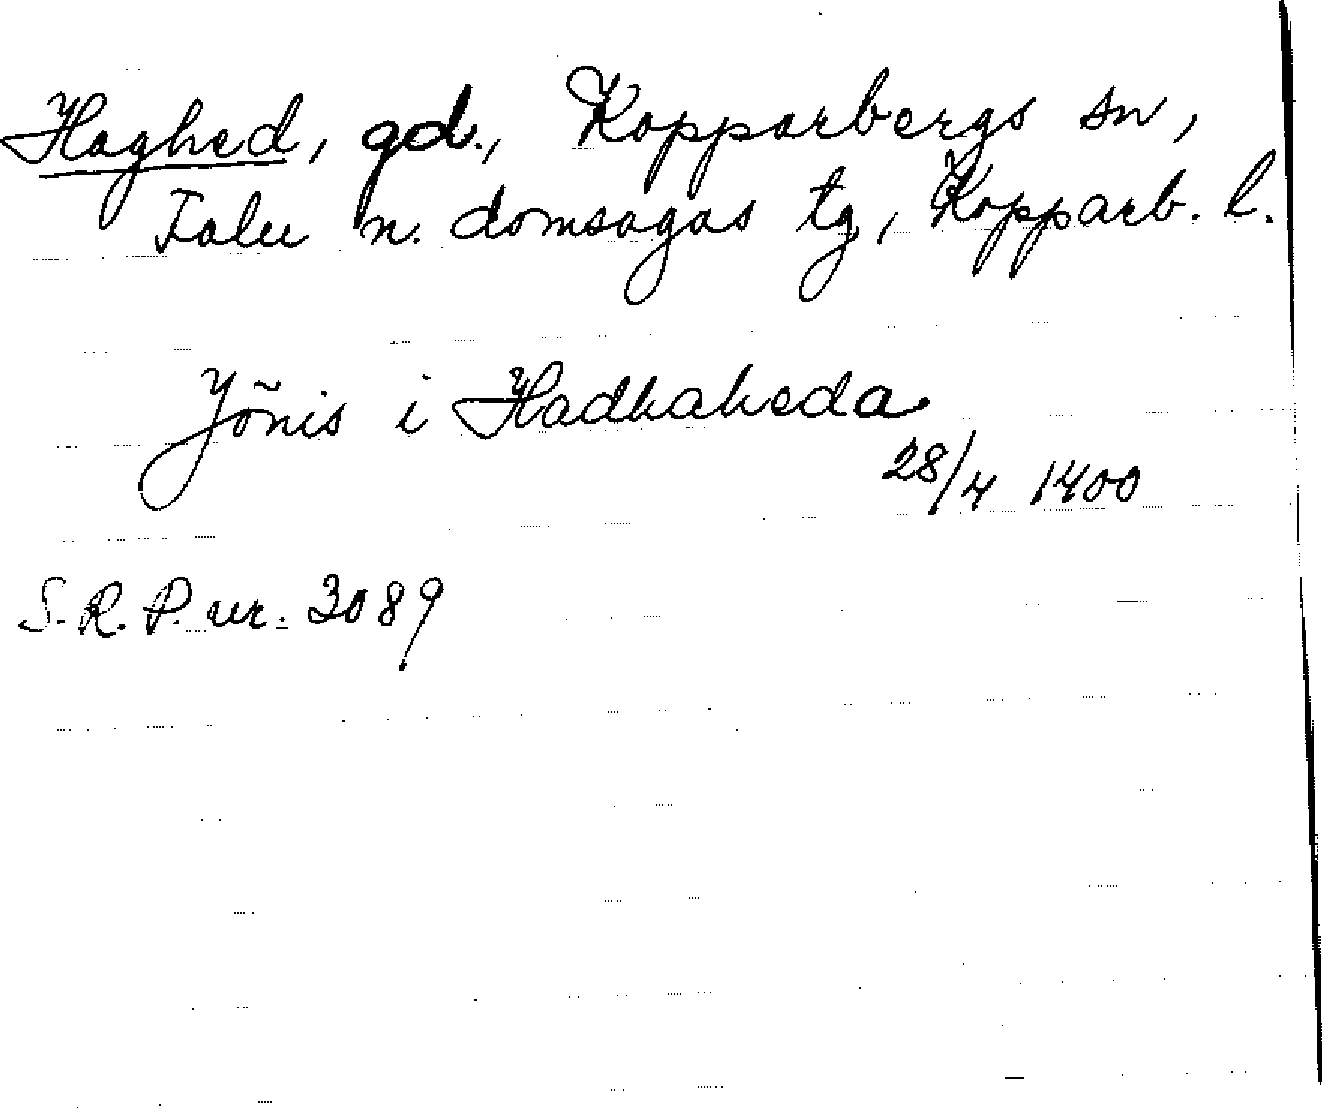 Haghed, gd., Kopparbergs sn,
Falu n. domsagas tg, Kopparb. l.
Jõnis i Hadhaheda
28/4 1400
S.R.P. nr. 3089